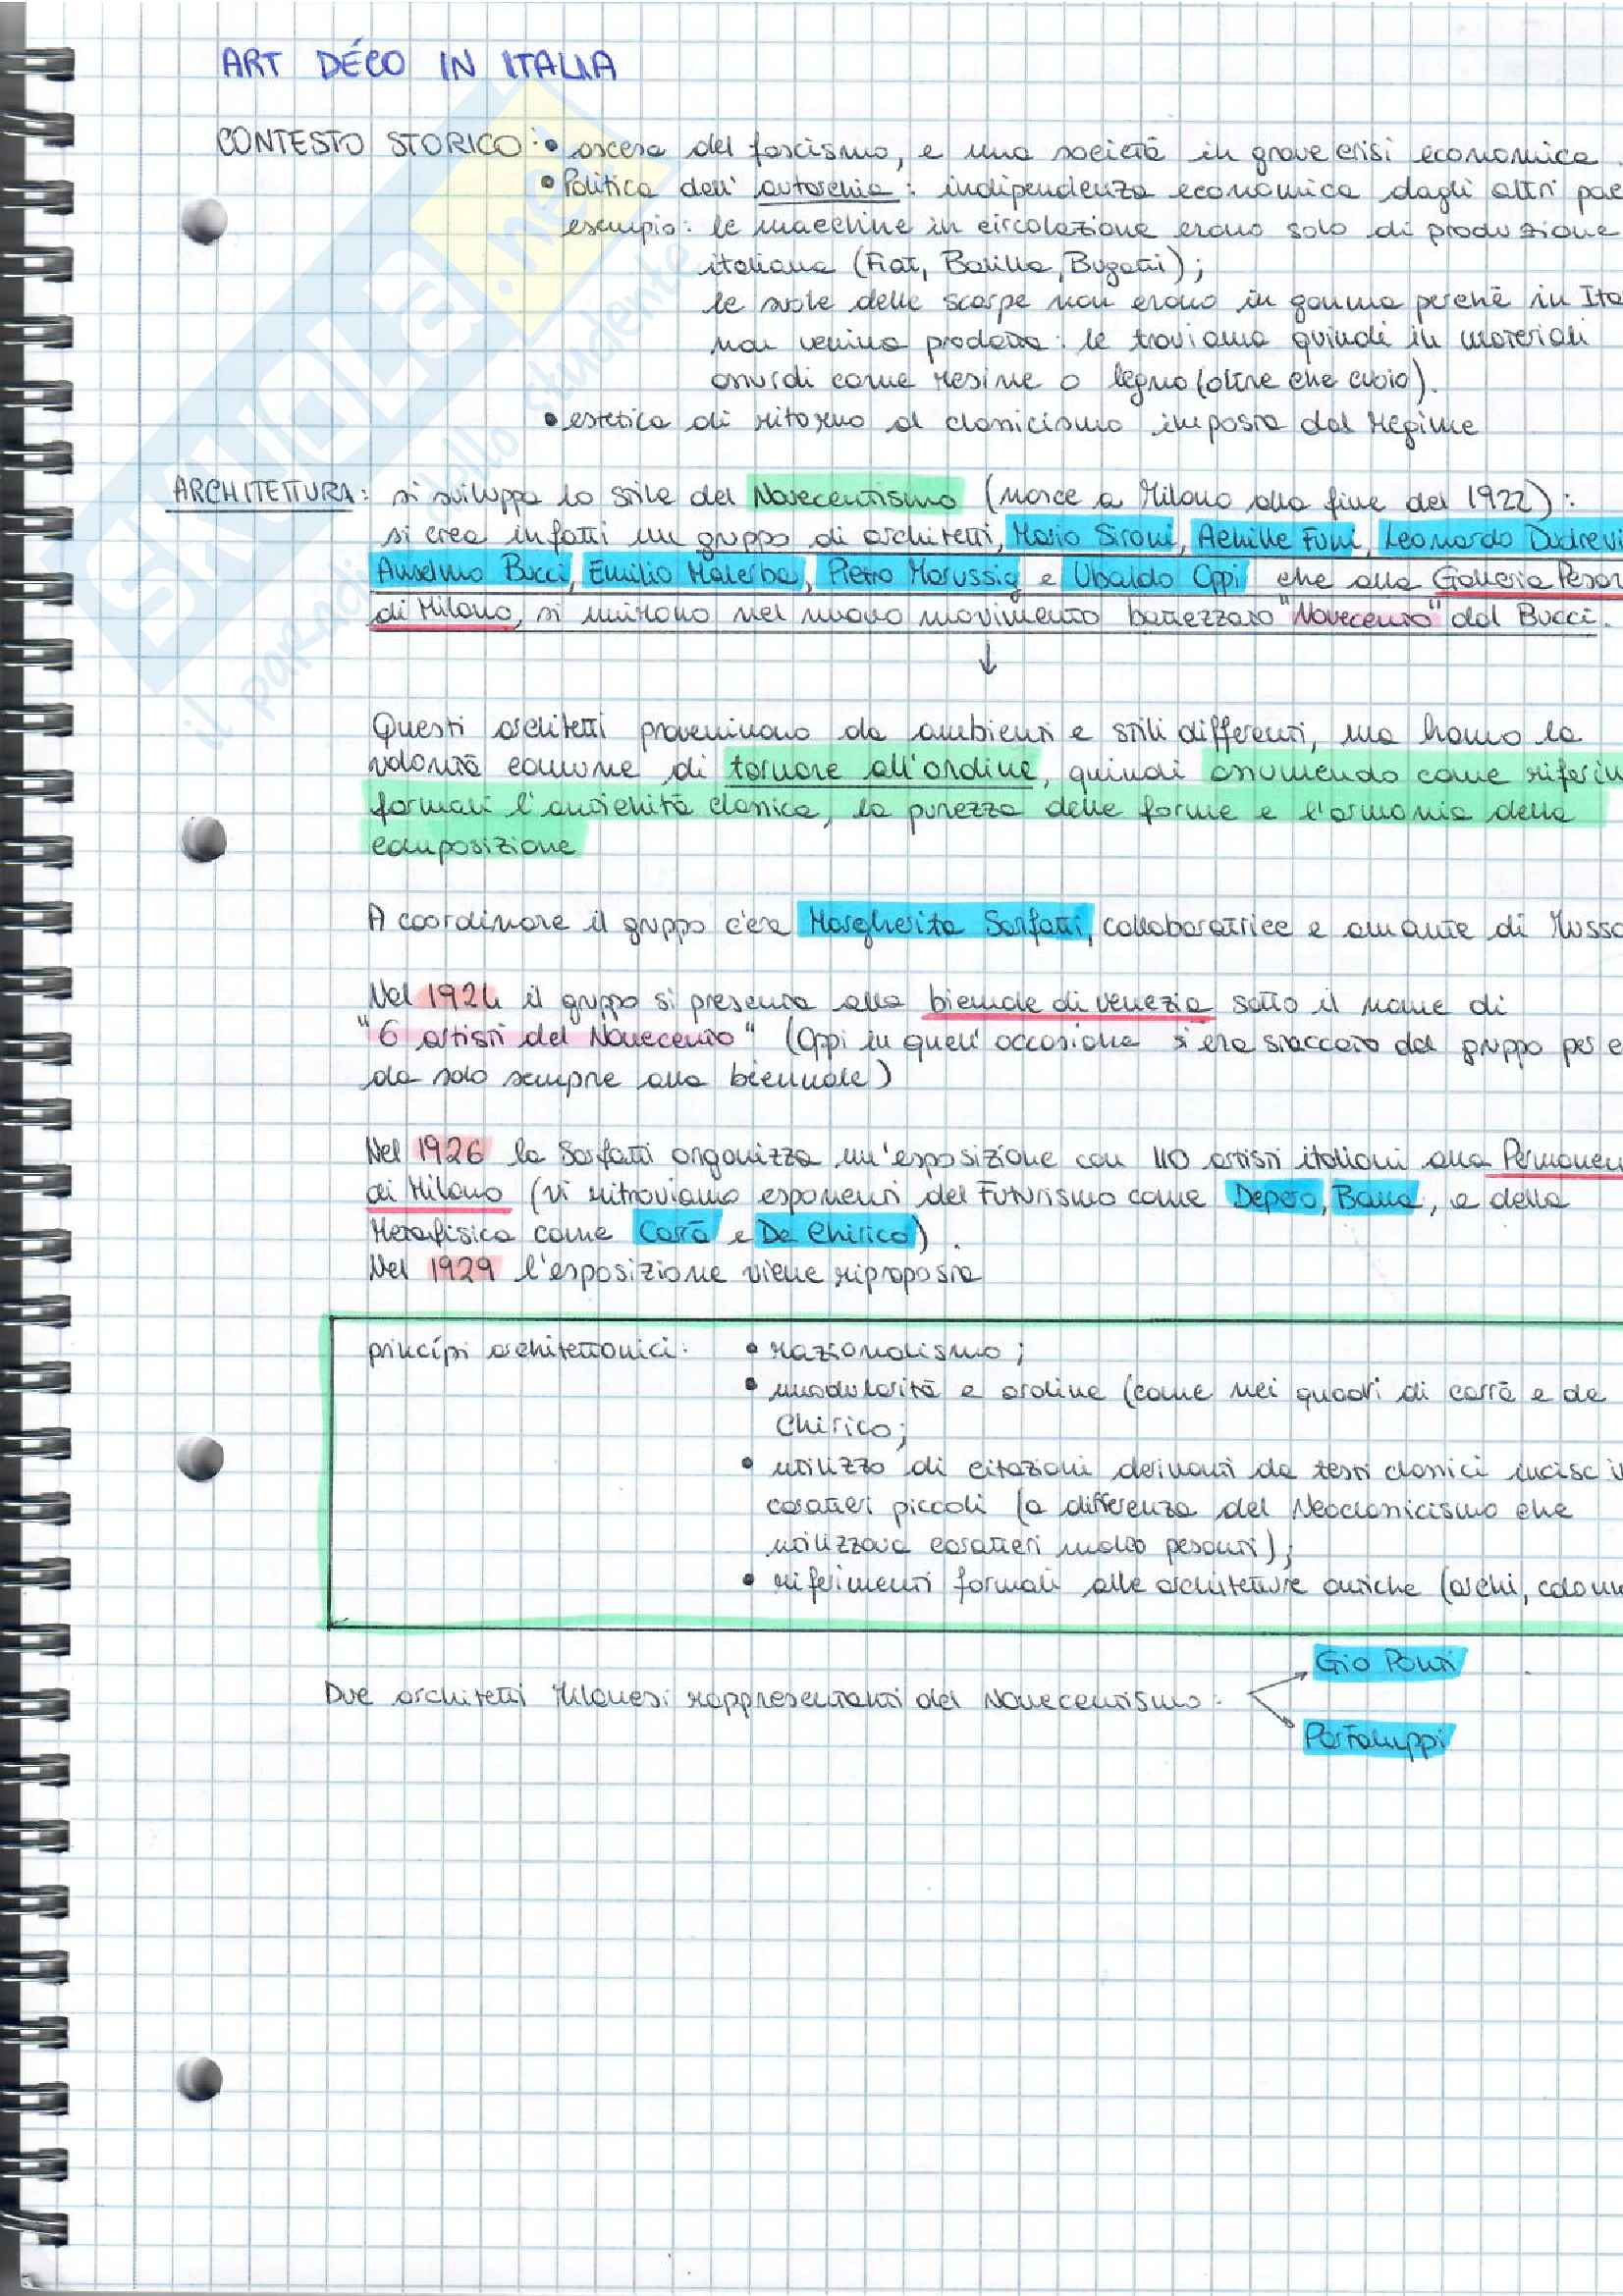 ART DÉCO IN ITALIA
CONTESTO STORICO: • ascesa del fascismo, e una società in grave crisi economica.
• Politica dell' autarchia: indipendenza economica dagli altri pae
esempio: le macchine in circolazione erano solo di produzione
italiana (Fiat, Balilla, Bugatti);
le suole delle scarpe non erano in gomma perchè in Ita
non veniva prodotta: le troviamo quindi in materiali
assurdi come resine o legno (oltre che cuoio).
• estetica di ritorno al classicismo imposta dal Regime
ARCHITETTURA: si sviluppa lo stile del Novecentismo (nasce a Milano alla fine del 1922):
si crea infatti un gruppo di architetti, Mario Sironi, Achille Funi, Leonardo Dudrevi
Anselmo Bucci, Emilio Malerba, Pietro Marussig e Ubaldo Oppi che alla Galleria Pesar
di Milano, si unirono nel nuovo movimento battezzato "Novecento" dal Bucci.
↓
Questi architetti provenivano da ambienti e stili differenti, ma hanno la
volontà comune di tornare all'ordine, quindi assumendo come riferim
formali l'antichità classica, la purezza delle forme e l'armonia della
composizione
A coordinare il gruppo c'era Margherita Sarfatti, collaboratrice e amante di Musso
Nel 1924 il gruppo si presenta alla biennale di venezia sotto il nome di
"6 artisti del Novecento" (Oppi in quell' occasione si era staccato dal gruppo per e
da solo sempre alla biennale)
Nel 1926 la Sarfatti organizza un'esposizione con 110 artisti italiani alla Permanen
di Milano (vi ritroviamo esponenti del Futurismo come Depero, Balla, e della
Metafisica come Carrà e De Chirico).
Nel 1929 l'esposizione viene riproposta
princípi architettonici: • razionalismo;
• modularità e ordine (come nei quadri di carrà e de
Chirico;
• utilizzo di citazioni derivanti da testi classici incisc i
caratteri piccoli (a differenza del Neoclassicismo che
utilizzava caratteri molto pesanti);
• riferimenti formali alle architetture antiche (archi, colonn
Gio Ponti
Due architetti Milanesi rappresentanti del Novecentismo:
Portaluppi
SKUOLA.net
il paradiso dello studente